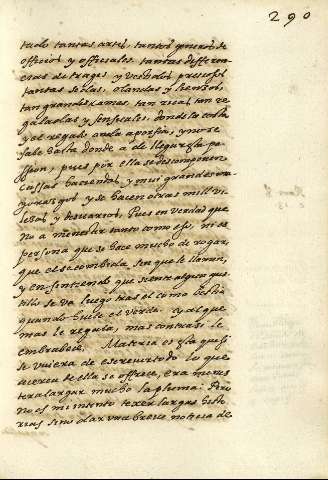 290
tudo tantas artes, tantos generos de
officios y officiales, tantas differen
cias de trages y vestidos preciosos
tantas sedas, olandas y lienzos,
tan grandes camas tan ricas, tan re
galadas y sensuales, donde la costa
y el regalo anda a porfia, y no se
sabe hasta donde a de llegar esta pa
sion, pues por ella se descomponen
cassas haciendas y muy grandes ma
yorasgos y se hacen otras mill vi
lezas y descarrios. Pues en verdad que
no a menester tanto como esso, ni es
persona que se hace mucho de rogar,
que el se combida sin que le llamen,
y en sintiendo que siente algun gus
tillo se va luego tras el como bestia
quando huele el verde. Y al que
mas le regala, mas contra si le
embrabece. Materia es esta que si
se uviera de escrevir todo lo que
acerca de ella se offrece, era menes
ter alargar mucho la pluma: Pero
no es mi intento texer largas histo
rias sino dar una breve noticia de